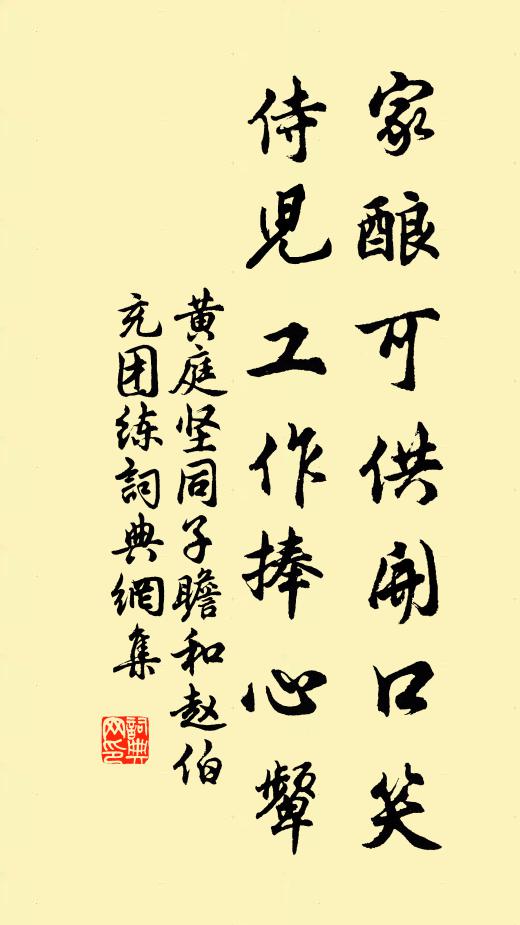 家酿可供開口笑
侍児工作捧心颦
黄庭坚同子瞻和赵伯
充团练詞典網集
詞典
网印